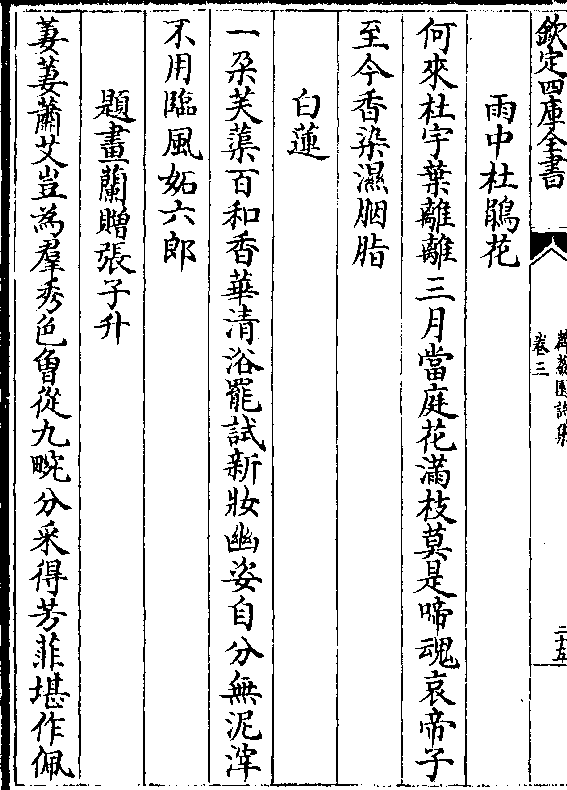 欽定四庫全書
卷三
二十五
雨中杜鵑花
何來杜宇葉離離三月當庭花滿枝莫是啼魂哀帝子
至今香染濕胭脂
白蓮
一朶芙蕖百和香華清浴罷試新妝幽姿自分無泥滓
不用臨風妬六郎
題畫蘭贈張子升
萋萋蕭艾豈為羣秀色曾從九畹分采得芳菲堪作佩